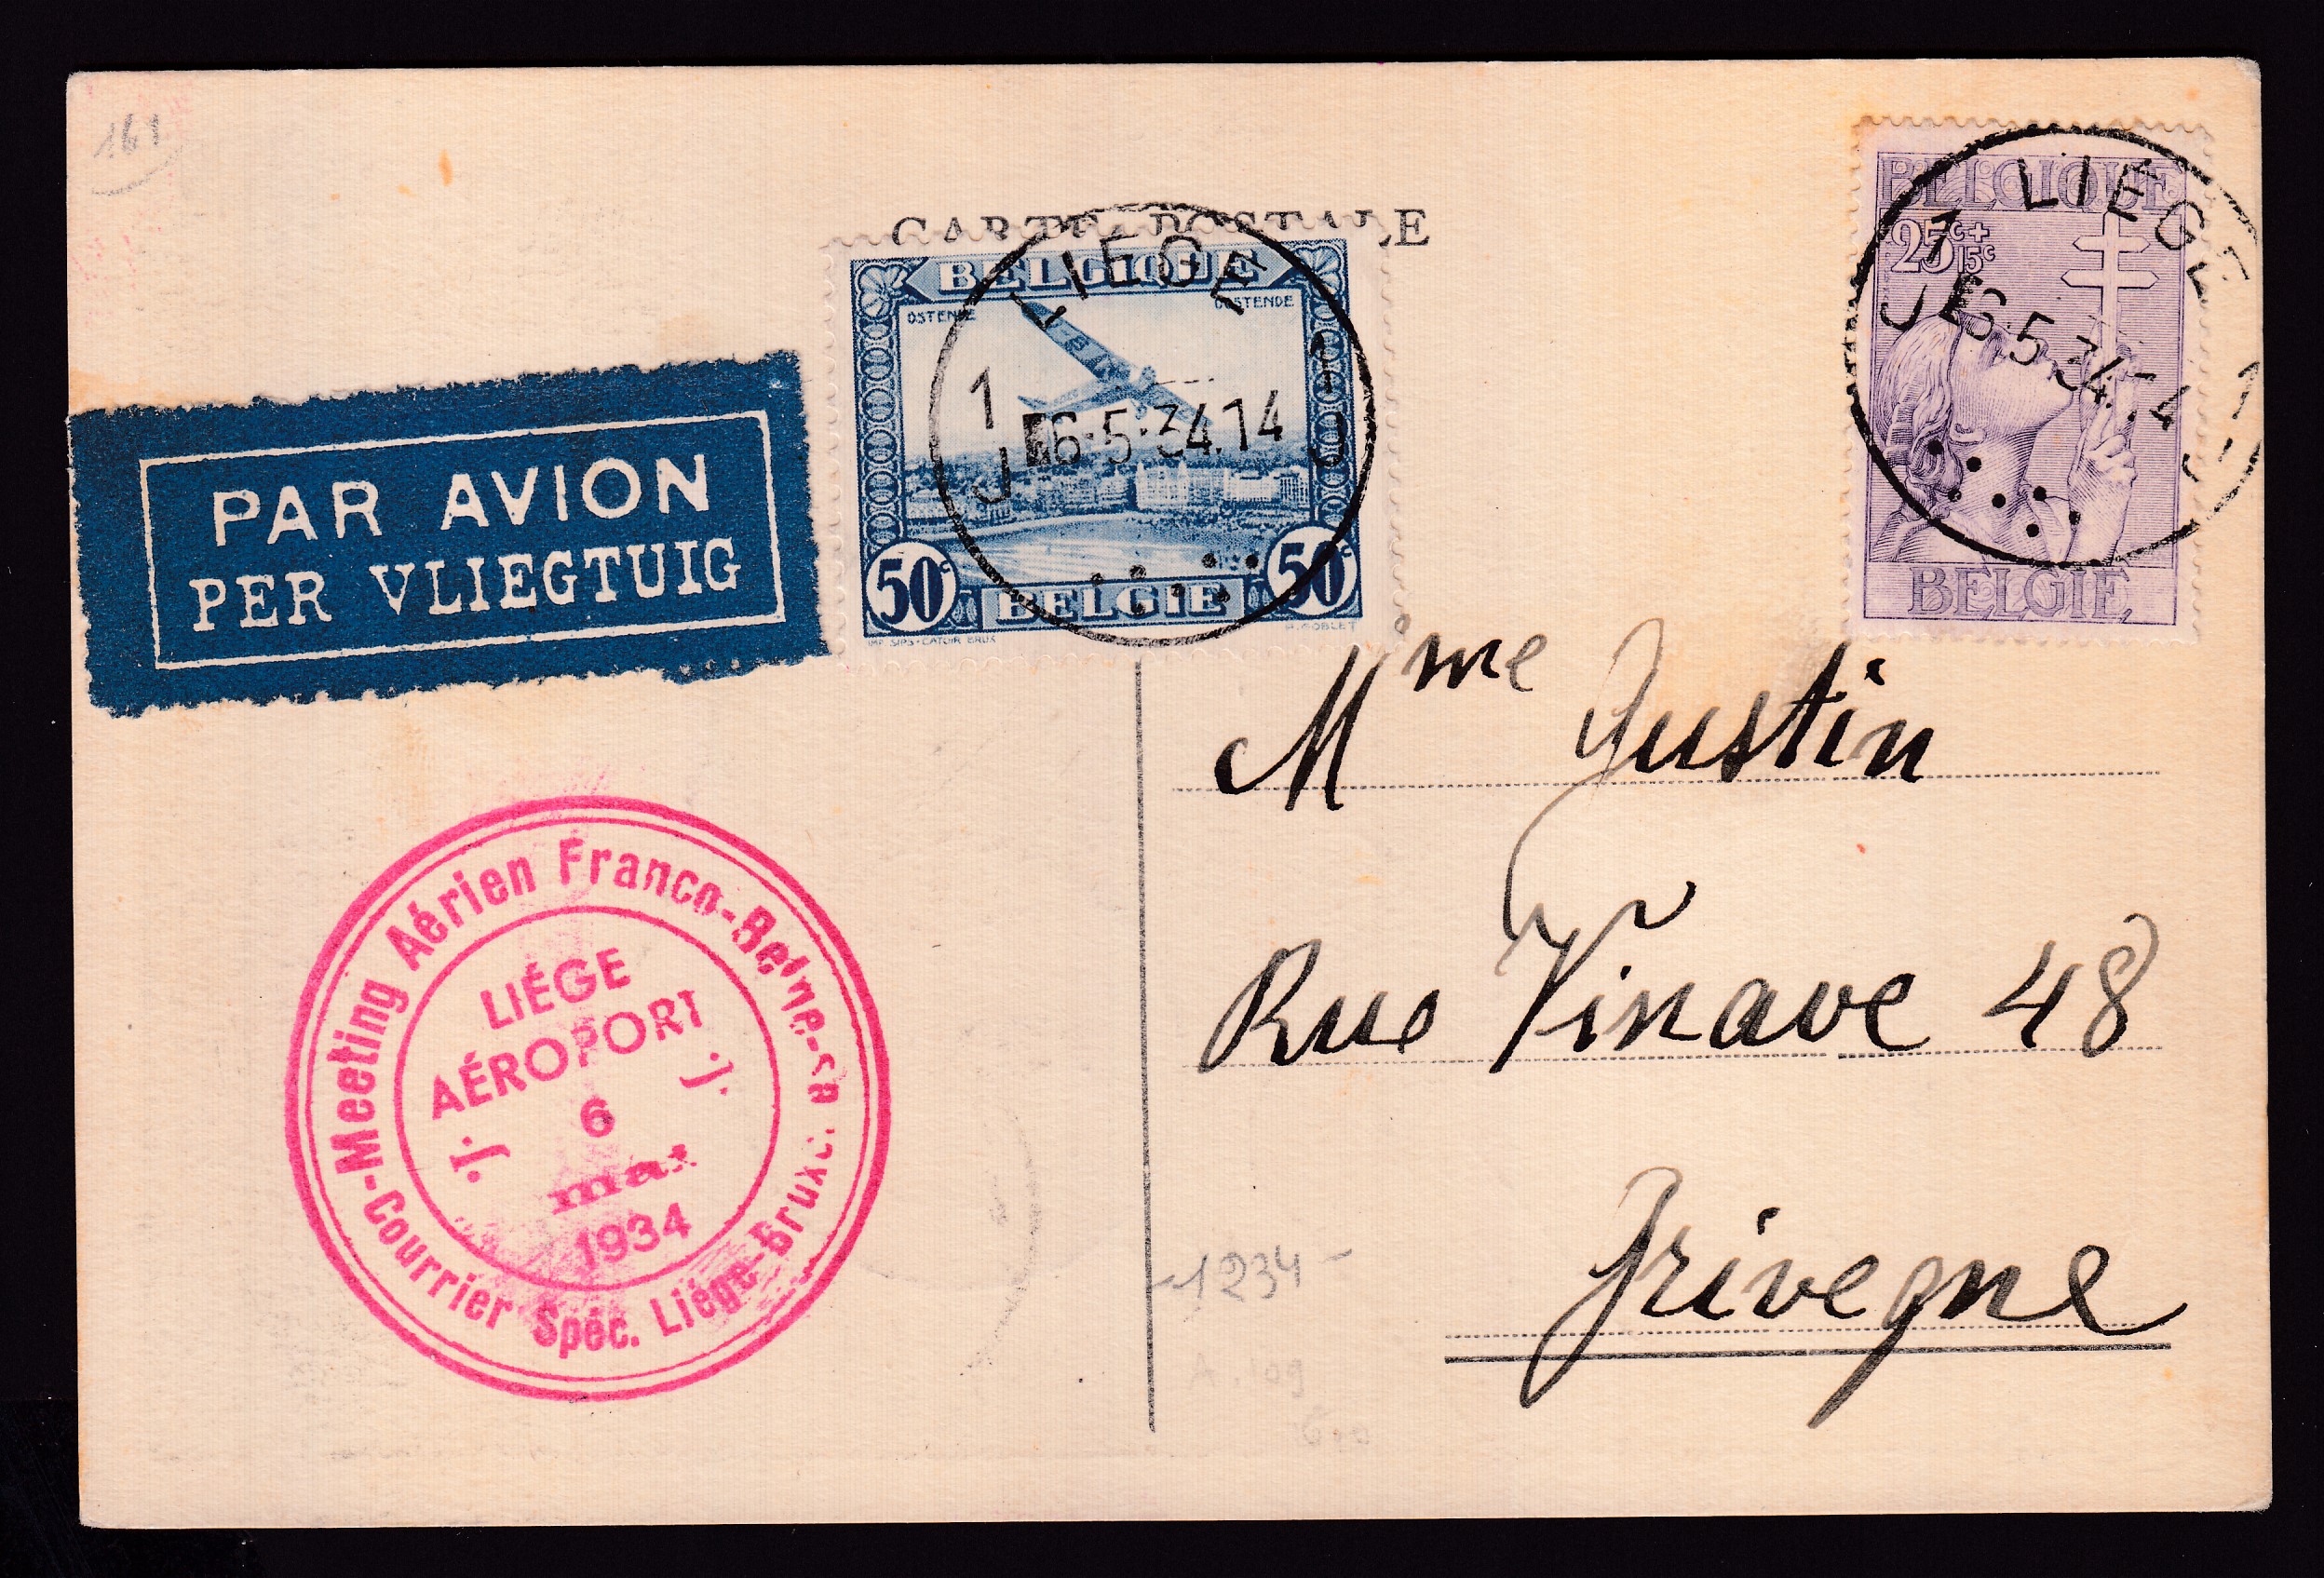 161
CARTE POSTALE
BELGIQUE
OSTENDE OOSTENDE
50c 50c
BELGIË
IMP. SIPS-CATOIR BRUX
LIEGE
1 1
J 6-5-34.14 J
BELGIQUE
25c+
15c
BELGIË
LIEGE
1 1
J 6-5-34
PAR AVION
PER VLIEGTUIG
Mme Justin
Rue Vinave 48
Grivegne
-Meeting Aérien Franco-Belge-
-Courrier Spéc. Liége-
LIÉGE
AÉROPORT
6
mai
1934
-1234-
A.109